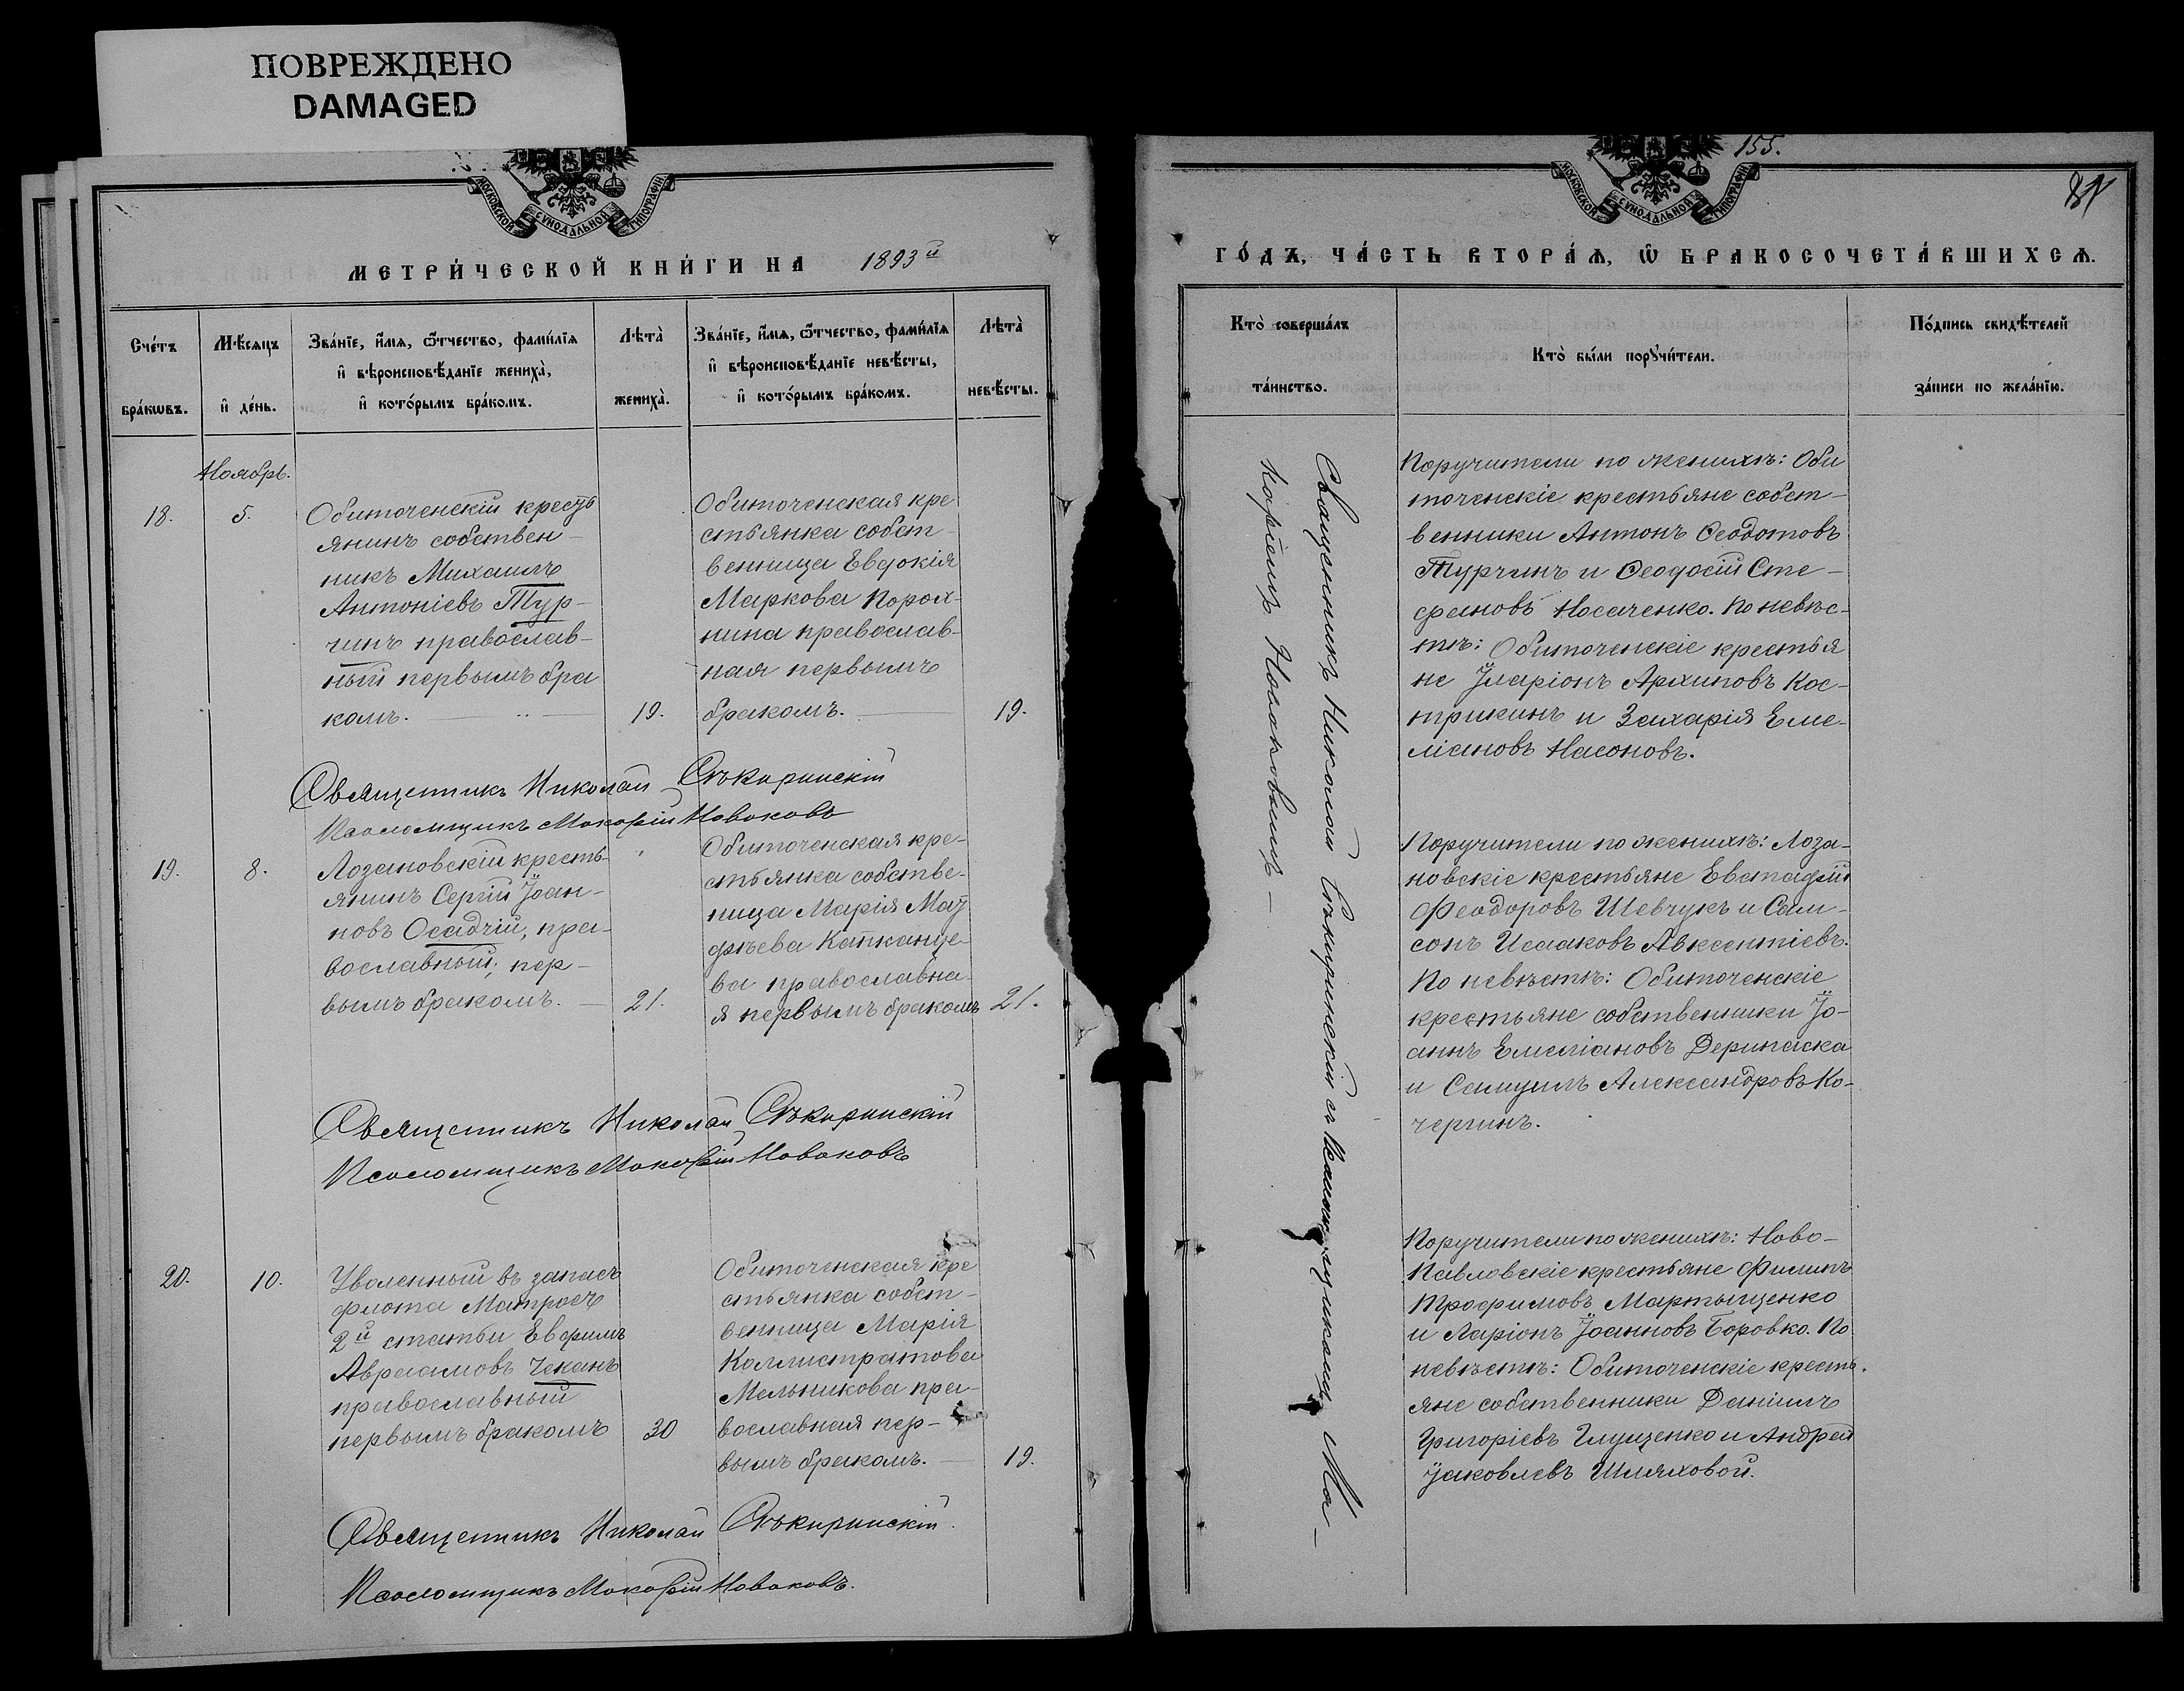 ПОВРЕЖДЕНО
DAMAGED
МОСКОВСКОЙ СѴНОДАЛЬНОЙ ТИПОГРАФІИ
МЕТРИ́ЧЕСКОЙ КНИ́ГИ НА 1893й
Сче́тъ бра́кѡвъ.
Мѣ́сяцъ и҆ де́нь.
Зва́нїе, и҆́мѧ, ѻ҆́тчество, фами́лїѧ
и҆ вѣроисповѣ́данїе жениха̀,
и҆ кото́рымъ бра́комъ.
Лѣта̀ жениха̀.
Зва́нїе, и҆́мѧ, ѻ҆́тчество, фами́лїѧ
и҆ вѣроисповѣ́данїе невѣ́сты,
и҆ кото́рымъ бра́комъ.
Лѣта̀ невѣ́сты.
Ноябрь.
18.
5.
Обиточенскій кресть
янинъ собствен-
никъ Михаилъ
Антоніевъ Тур-
чинъ православ-
ный первымъ бра
комъ.
19.
Обиточенская кре
стьянка собст-
венница Евдокія
Маркова Порох-
нина православ-
ная первымъ
бракомъ.
19.
Священникъ Николай Сѣкиринскій
Псаломщикъ Макарій Новаковъ
19.
8.
Лозановскій кресть-
янинъ Сергій Іоан-
новъ Осадчій, пра-
вославный, пер-
вымъ бракомъ.
21.
Обиточенская кре-
стьянка собстве-
ница Марія Мат
фѣева Капканце-
ва православна-
я первымъ бракомъ
21.
Священникъ Николай Сѣкиринскій
Псаломщикъ Макарій Новаковъ
20.
10.
Уволенный въ запасъ
флота Матросъ
2й статьи Евфимъ
Авраамовъ Чеканъ
православный
первымъ бракомъ
30
Обиточенская кре
стьянка собст-
венница Марія
Каллистратова
Мельникова пра-
вославная пер-
вымъ бракомъ.
19.
Священникъ Николай Сѣкиринскій.
Псаломщикъ Макарій Новаковъ.
155.
МОСКОВСКОЙ СѴНОДАЛЬНОЙ ТИПОГРАФІИ
ГО́ДЪ, ЧА́СТЬ ВТОРА́Ѧ, Ѡ҆ БРАКОСОЧЕТА́ВШИХСѦ.
Кто̀ соверша́лъ
та́инство.
Кто̀ бы́ли порꙋчи́тели.
По́дпись свидѣ́телей
за́писи по жела́нїю.
Священникъ Николай Сѣкиринскій съ Псаломщикомъ Ма-
каріемъ Новаковымъ-
Поручители по женихѣ: Оби
точенскіе крестьяне собст-
венники Антонъ Ѳеодотовъ
Турчинъ и Ѳеодосій Сте-
фановъ Носаченко. По невѣс-
тѣ: Обиточенскіе крестья
не Іларіонъ Архиповъ Кос-
трикинъ и Захарія Еме-
ліановъ Насоновъ.
Поручители по женихѣ: Лоза-
новскіе крестьяне Евстафій
Феодоровъ Шевчукъ и Сам-
сонъ Исааковъ Авксентіевъ.
По невѣстѣ: Обиточенскіе
крестьяне собственники Іо-
аннъ Емеліановъ Дерипаска
и Самуилъ Александровъ Ко-
чергинъ.
Поручители по женихѣ: Ново-
Павловскіе крестьяне Филипъ
Трофимовъ Мартыщенко
и Ларіонъ Іоанновъ Боровко. По
невѣстѣ: Обиточенскіе кресть.
яне собственники Даніилъ
Григоріевъ Глущенко и Андрей
Іаковлевъ Шляховой.